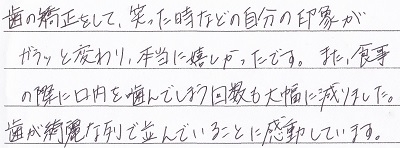 歯の矯正をして、笑った時などの自分の印象が
ガラッと変わり、本当に嬉しかったです。また、食事
の際に口内を噛んでしまう回数も大幅に減りました。
歯が綺麗な列で並んでいることに感動しています。